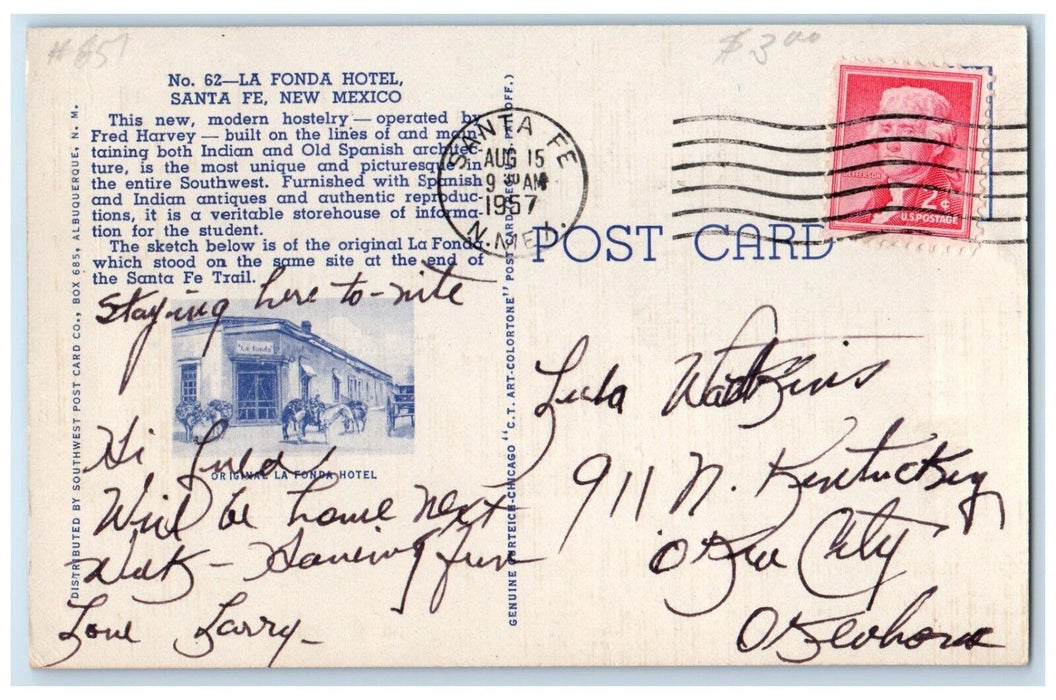 #657
$3.00
No. 62—LA FONDA HOTEL,
SANTA FE, NEW MEXICO
This new, modern hostelry — operated by
Fred Harvey — built on the lines of and main-
taining both Indian and Old Spanish architec-
ture, is the most unique and picturesque in
the entire Southwest. Furnished with Spanish
and Indian antiques and authentic reproduc-
tions, it is a veritable storehouse of informa-
tion for the student.
The sketch below is of the original La Fonda
which stood on the same site at the end of
the Santa Fe Trail.
Staying here to-nite
La Fonda
ORIGINAL LA FONDA HOTEL
Hi Lula
Will be home next
Wek - Having fun
Love Larry-
DISTRIBUTED BY SOUTHWEST POST CARD CO., BOX 685, ALBUQUERQUE, N. M.
GENUINE CURTEICH-CHICAGO "C.T. ART-COLORTONE" POST CARD (REG. U.S. PAT. OFF.)
SANTA FE
AUG 15
9 AM
1957
N. MEX.
JEFFERSON
2¢
U.S. POSTAGE
POST CARD
Lula Watkins
911 N. Kentuckey
Okla City
Oklahoma